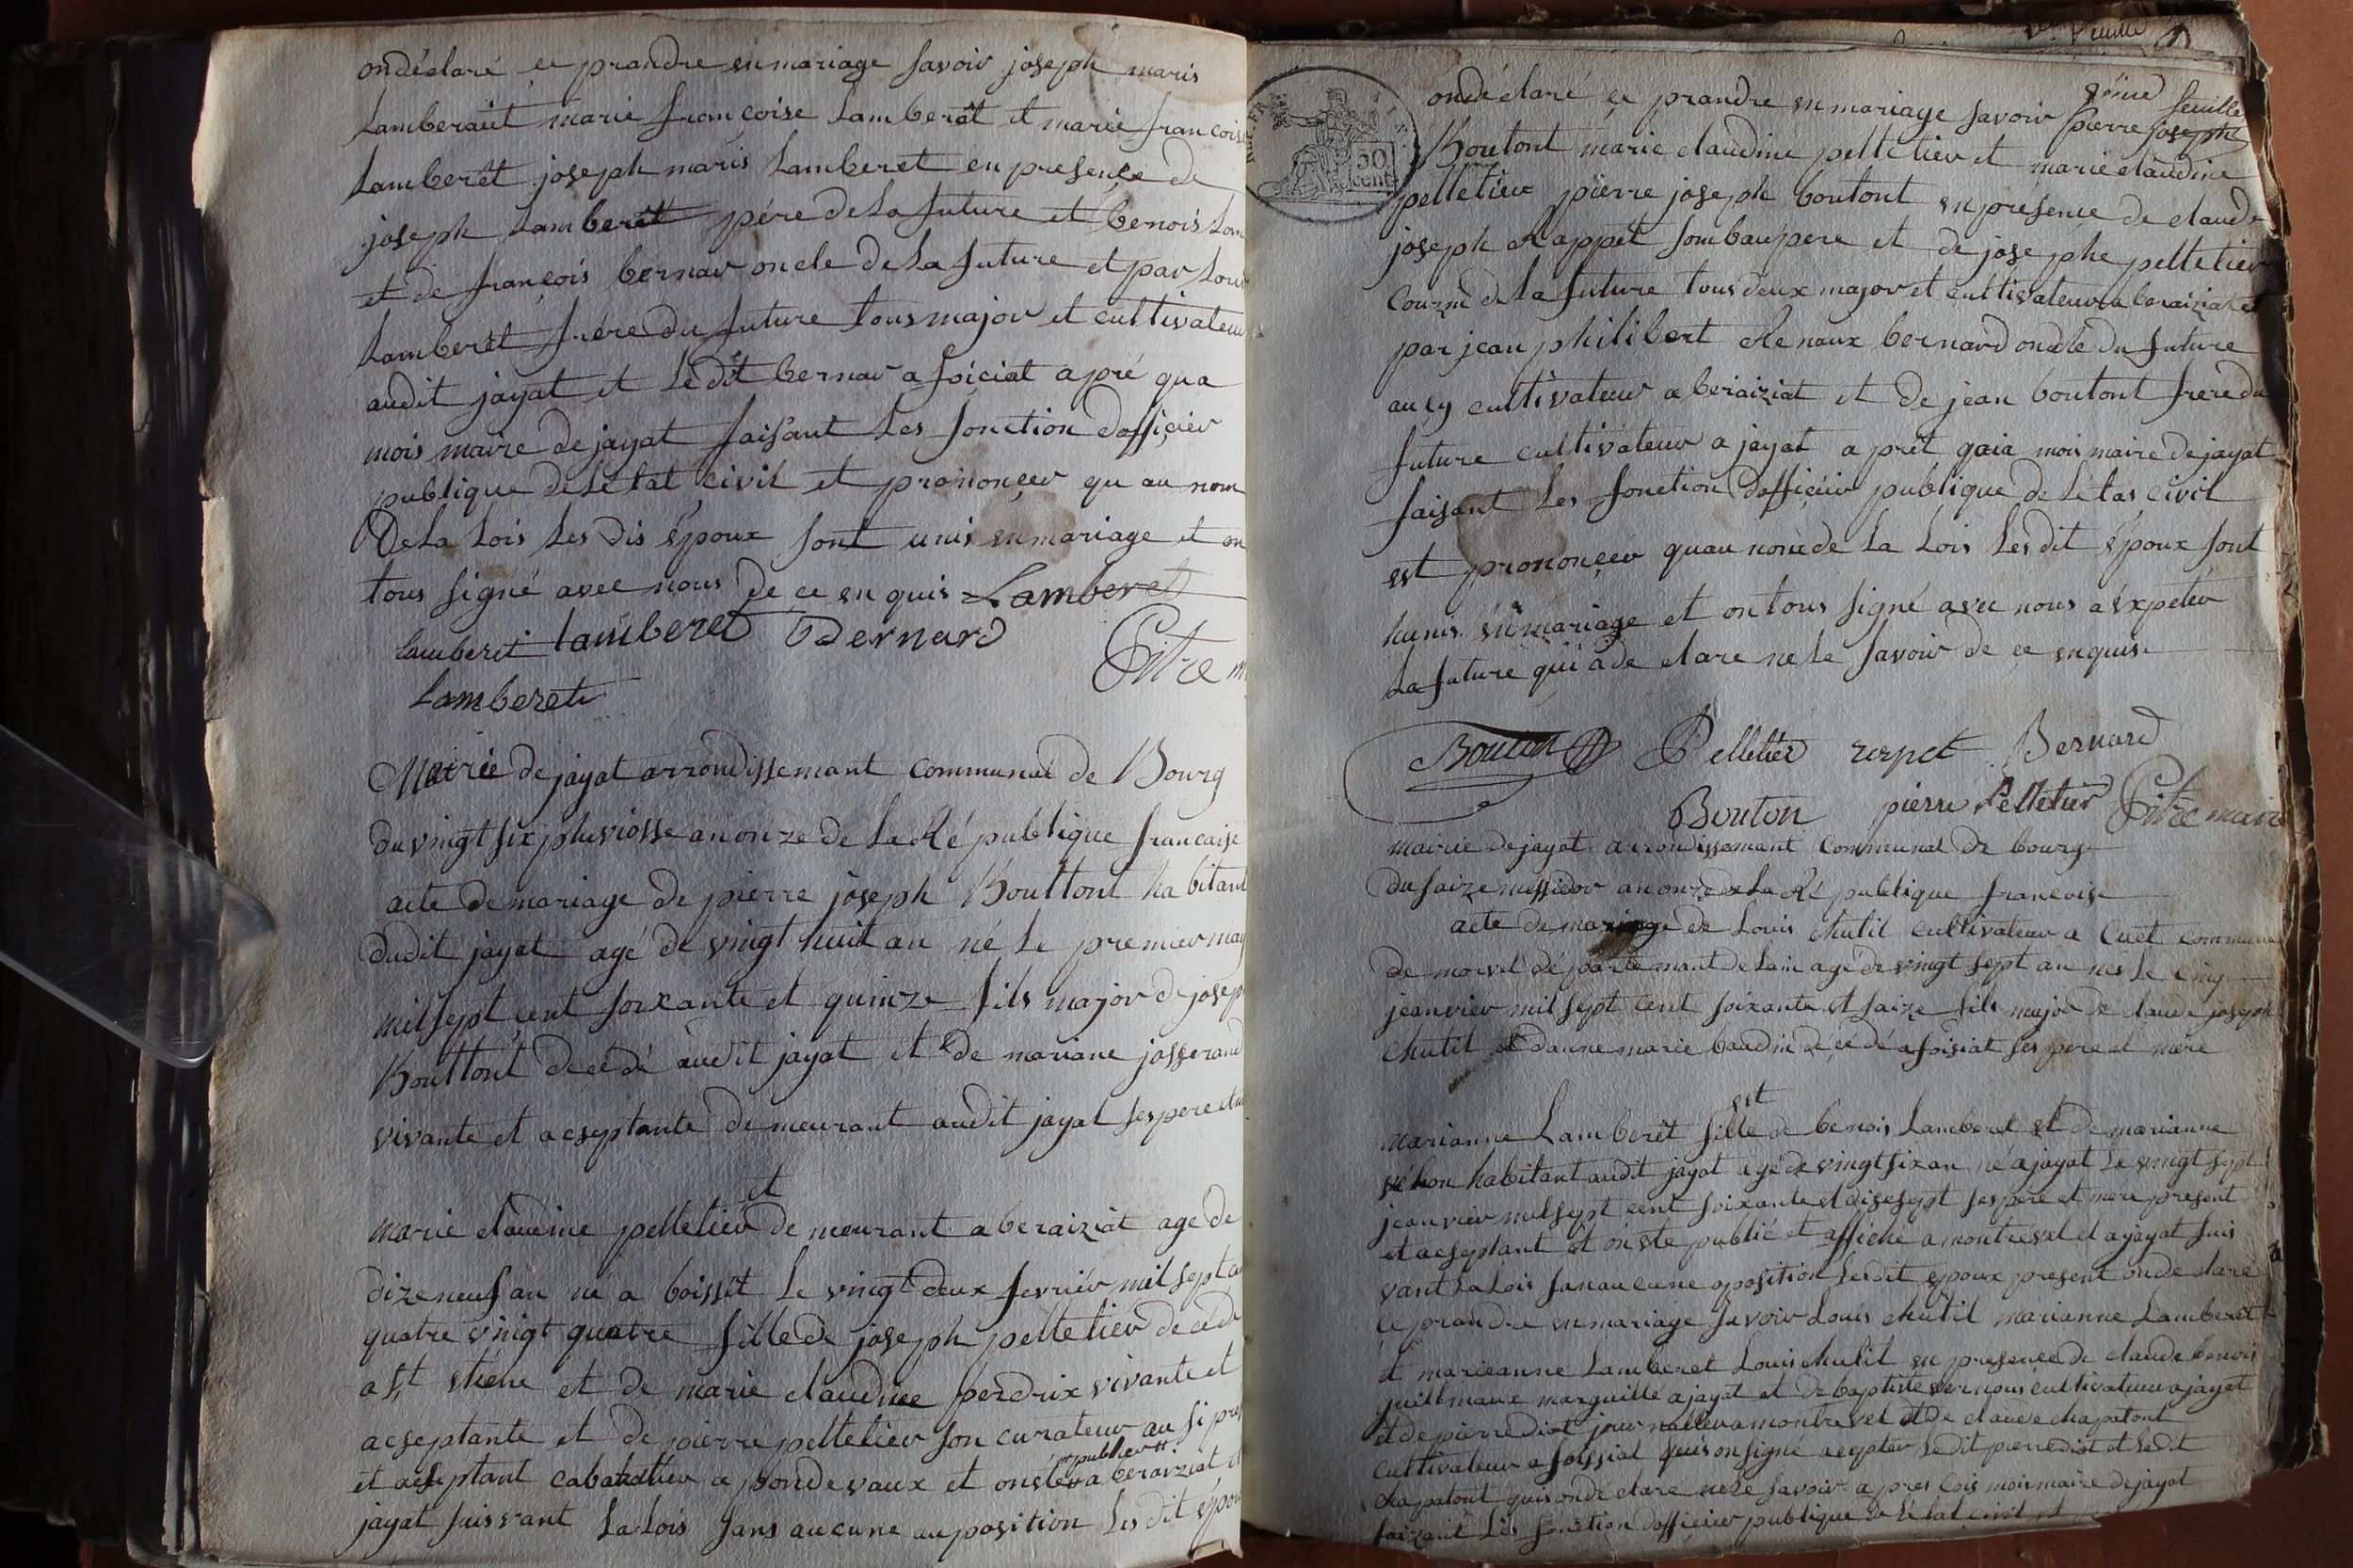 ondéclaré ce prandre en mariage savoir joseph maris
Lamberaut marie françoise Lamberet et marie françoise
Lamberet joseph maris Lamberet en presence de
joseph Lamberêt pére de La future et benois Lam
et de françois bernar oncle de La future et par Loui
Lamberet frére du future tous major et cultivateur
audit jayat et Ledit bernar a foiciat apré qua
mois maire de jayat faisant Les fonction dofficier
publique de Létat civil et prononcer qu au nom
De La Lois Les dis époux sont unis en mariage et on
tous signé avec nous de ce en quis Lamberet
Lamberet Lamberet Bernard
Pitre m
Lamberet
Mairie de jayat arrondissemant communal de Bourg
du vingt six pluviosse an onze de La République francaise
acte de mariage de pierre joseph Bouttont habitant
dudit jayat agé de vingt huit an né Le premier may
mil sept cent soixante et quinze fils major de josep
Bouttont decedé audit jayat et de mariane josserand
vivante et acseptante demeurant audit jayat ses pere et m
et
marie claudine pelletier demeurant a beraiziat age de
dizeneuf an né a boissét Le vingt deux fevriér mil sept ce
quatre vingt quatre fille de joseph pelletier decéde
a st et de marie claudine perdrix vivante et
acseptante et de pierre pelletier son curateur au si pres
et aceptant cabaretier a pondevaux et on été publier a beraiziat et
jayat suissvant La Lois sans aucune auposition Les dit épou
8éme feuille
ondéclaré ce prandre en mariage savoir pierre joseph
Boutont marie claudine pelletier et marie claudine
pelletier pierre joseph boutont en présence de claude
joseph Rappet som baupere et de josephe pelletier
Couzin de La future tous deux major et cultivateur a beraiziat et
par jean philibert Renaux bernard oncle du future
aucy cultivateur a beraiziat et de jean boutont frere du
future cultivateur a jayat aprêt qaia moi maire de jayat
faisant Les fonction dofficiér publique de Létas civil
est prononcer quau nom de La Lois Lesdit époux sont
hunis en mariage et on tous signé avec nous a éxpeter
La future qui a declare ne Le savoir de ce enquis
Bouton Pelletier Bernard
Bouton pierre Pelletier Pitre maire
mairie de jayat arrondissemant communal de bourg
du saize messidor an onze de La République francoise
acte de mariage de Louis chutil cultivateur a Cuet commune
de departemant de Lain agé de vingt sept an nés Le cinq
jeanvier mil sept cent soixante et saize fils major de claude joseph
chutil et danne marie baudin decedé a foisiat ses pere et mere
est
marianne Lamberêt fille de benois Lamberet et de marianne
habitant audit jayat agé de vingt six an né a jayat Le vingt sept
jeanvier mil sept cent soixante et disesept ses pere et mere present
et acseptant et on été publié et affiché a montrevel et a jayat suis
vant La Lois san aucune oposition Lesdit époux present on declaré
ce prandre en mariage savoir Louis chutil marianne Lamberet
et marieanne Lamberet Louis chutil en presence de claude benois
guillmaux marguille a jayat et de baptiste cultivateur a jayat
et de pierre diot journallier a montrevel et de claude chapatont
cultivateur a foissiat quis on signé acepter Ledit pierre diot et Ledit
chapatont quis on declare ne Le savoir apres cois moi maire de jayat
faizant Les fonction dofficier publique de Létat civil et